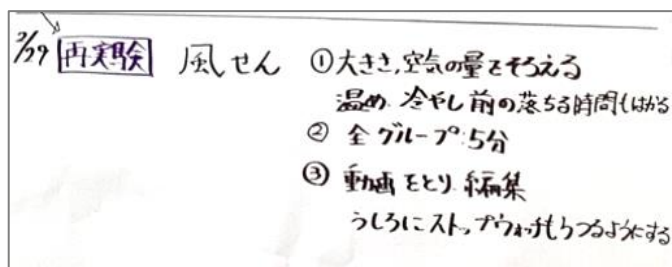 2/29 再実験 風せん ①大きさ,空気の量をそろえる
温め 冷やし前の落ちる時間もはかる
② 全グループ:5分
③ 動画をとり 編集
うしろにストップウォッチもうつるようにする